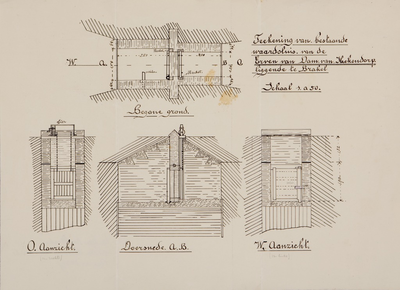 Teekening van bestaande
waardsluis van de
Erven van Dam van Hekendorp
liggende te Brakel
Schaal 1 a 50.
W. A. B O
Begane grond.
O. Aanzicht.
Doorsnede. A.B.
W. Aanzicht.